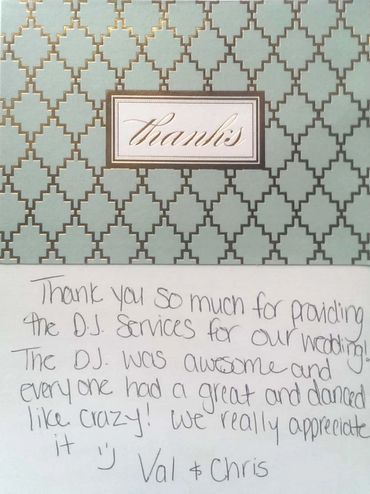 thanks
Thank you so much for providing
the D.J. Services for our wedding!
The DJ. was awesome and
everyone had a great and danced
like crazy! We really appreciate
it :)
Val & Chris